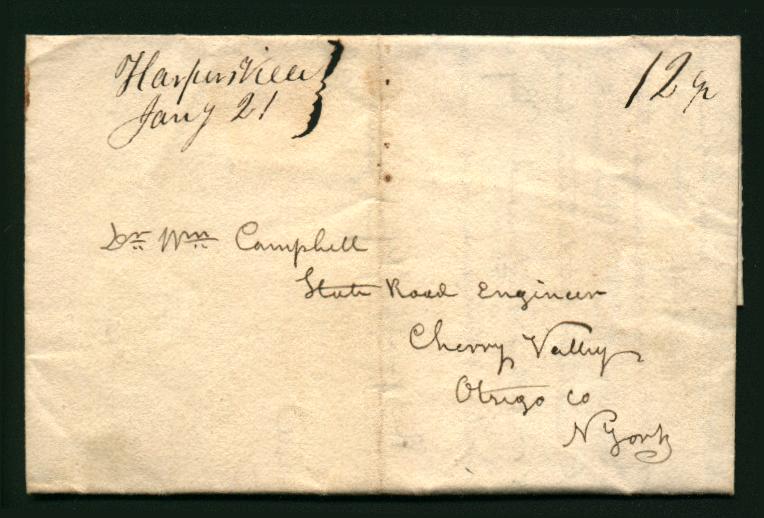 Harpersville
Jany 21
12 ½
Dr Wm Campbell
State Road Engineer
Cherry Valley
Otsego Co
N York